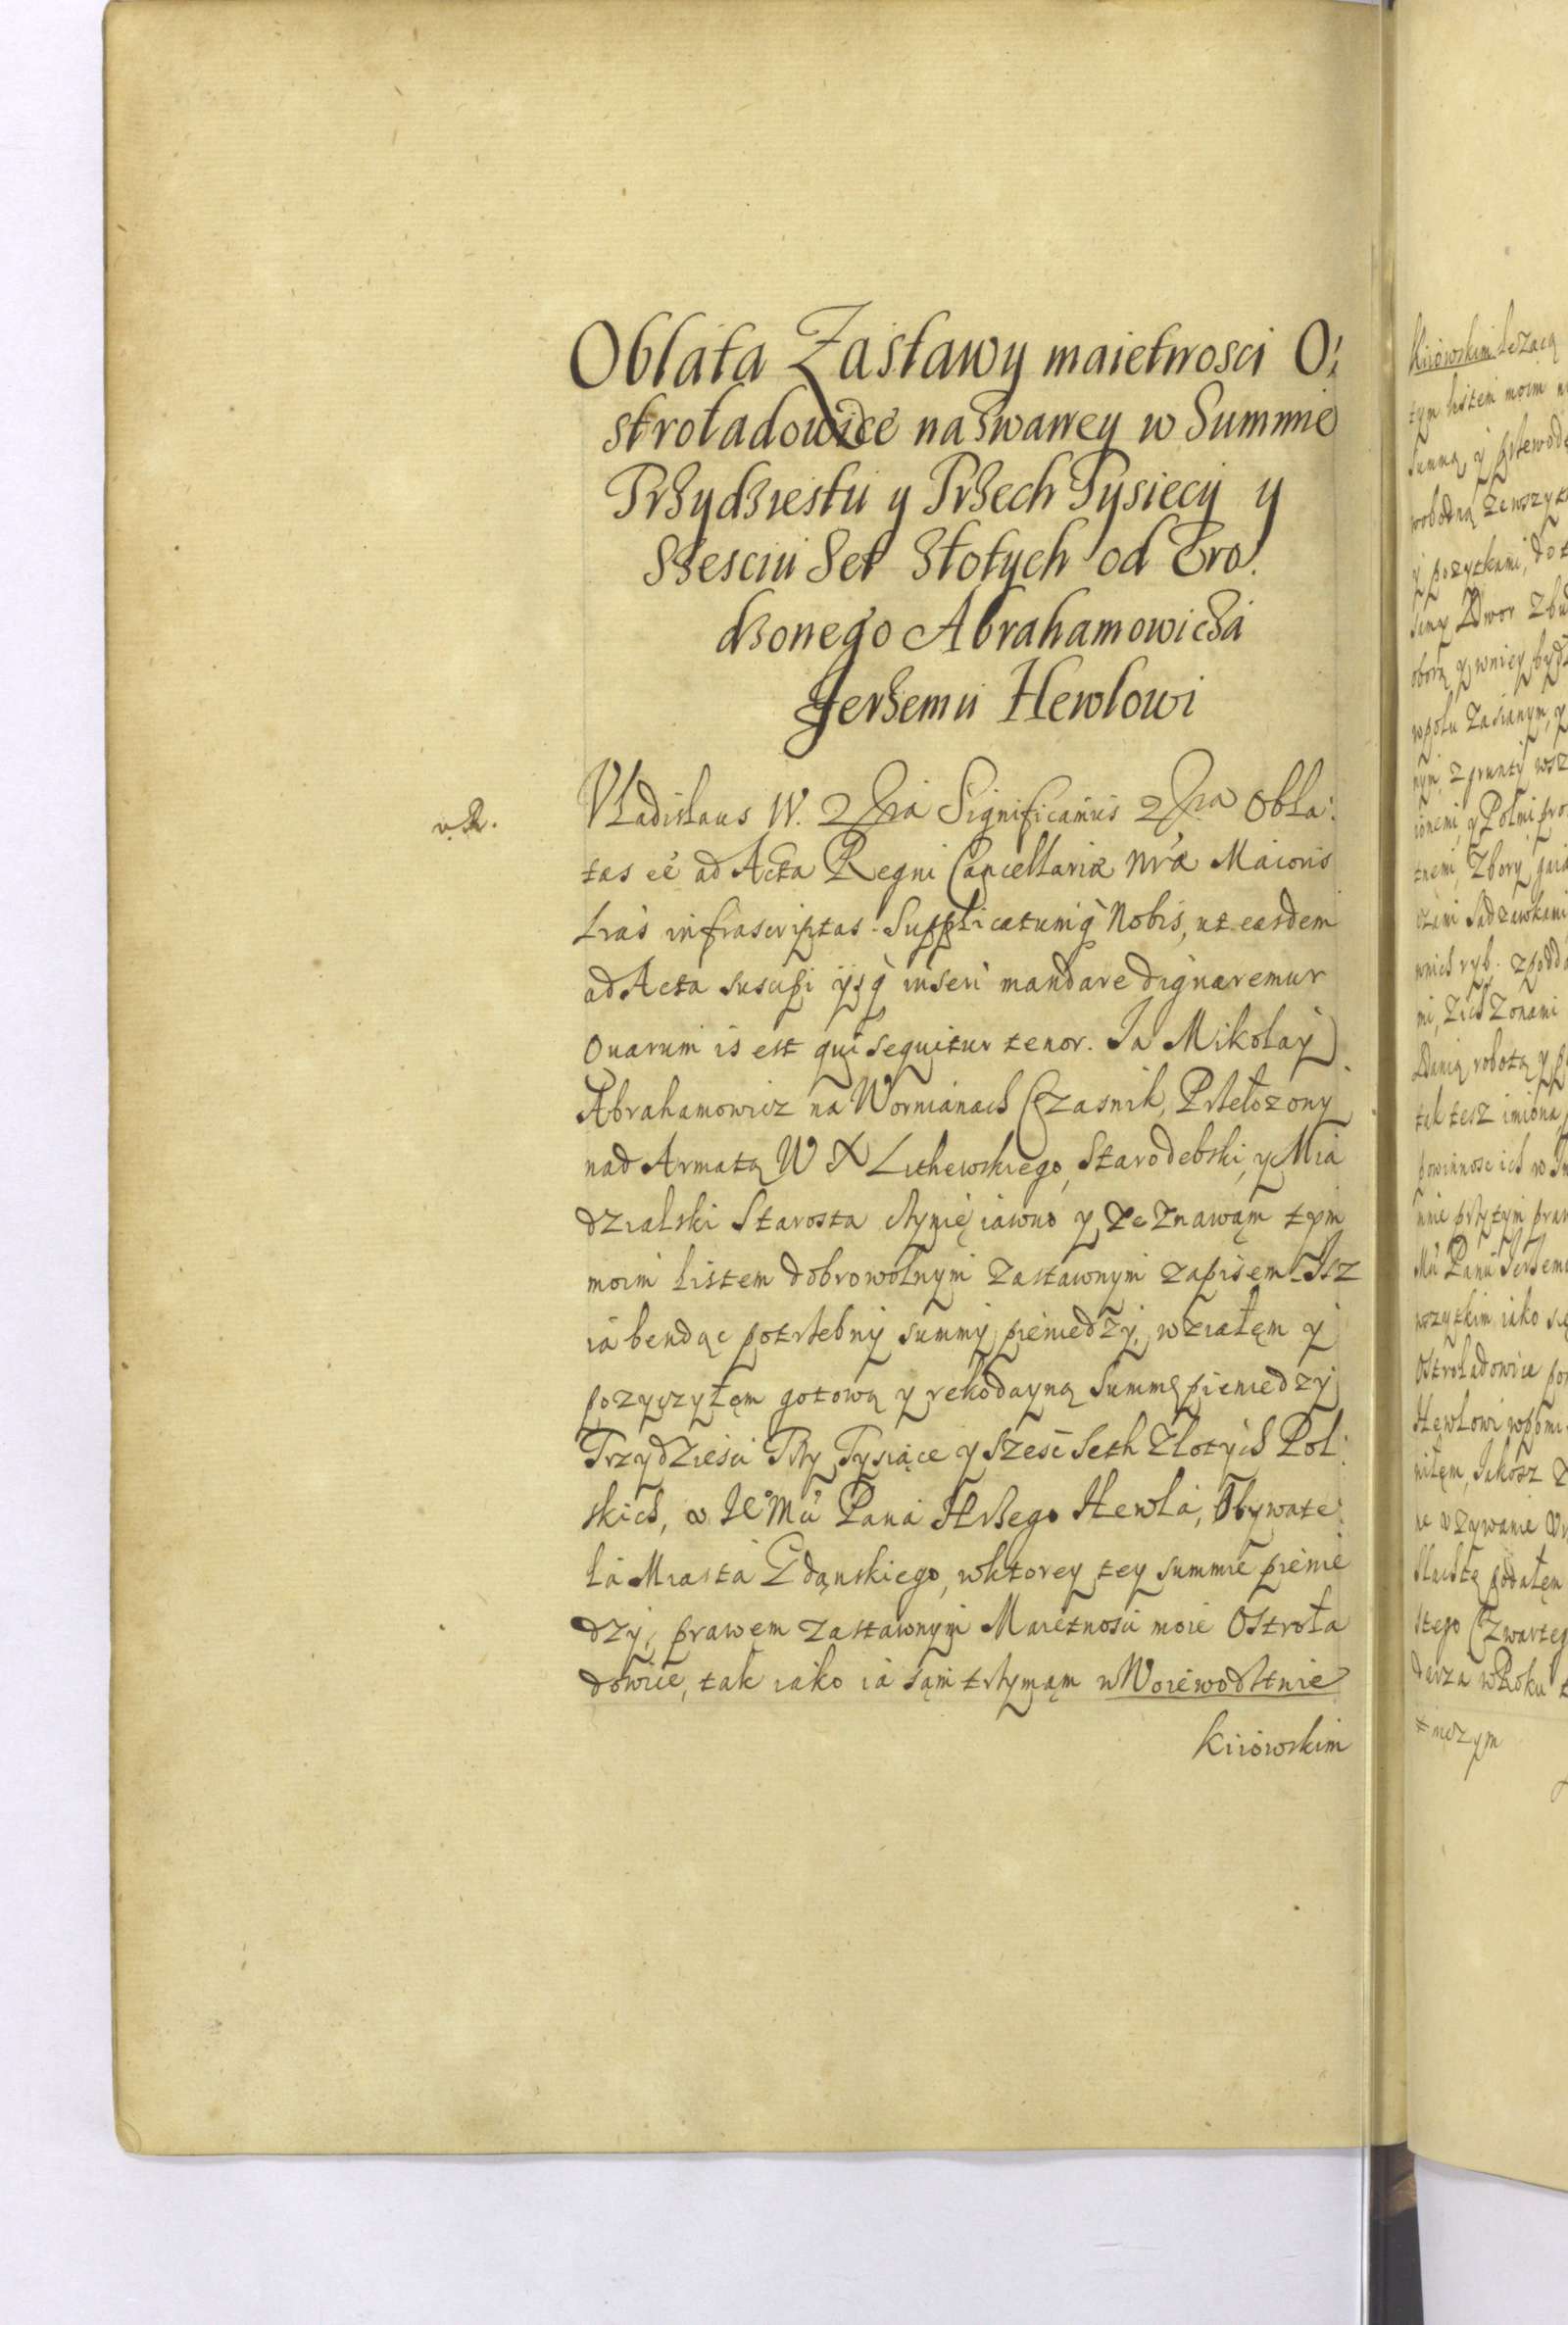 Oblata Zastawy maietnosci O:
stroładowice naswaney w Summie
Trzydziestu y Trzech Tysiecy y
Szesciu Set Złotych od Uro:
dzonego Abrahamowicza
Jerzemu Hewlowi
Vladislaus IV. Significamus Obla:
tas eē ad Acta Regni Cancellariæ nrǽ Maioris
Lrás infrascriptas. Supplicatumq́ Nobis, ut easdem
ad Acta suscipi ijsq́ inseri mandare dignaremur
Quarum is est qui sequitur tenor. Ja Mikołay
Abrahamowicz na Wornianach Czasnik, Przełozony
nad Armatą W X Lithewskiego, Starodebski, y Mia
dzialski Starosta czynię iawno y zeznawąm tym
moim listem dobrowolnym zastawnym zapisem. Isz
ia bendąc potrzebny summy pieniedzy, wziałęm y
pozyczyłęm gotową y rekodayną summę pieniedzy
Trzydziesci Trzy Tysiące y szesc seth Złotych Pol:
skich, v Je° Mū Pana Jerzego Hewla, Obywate:
la Miasta Gdąnskiego, wktorey tey summie pienie
dzy, prawęm zastawnym Maietnosci moie Ostroła
dowice, tak iako ia sąm trzymąm w Woiewodztwie
Kiiowskim
Kiiowskim leżącą
tym listem moim
summą, y przewodę
y pozytkami, do
Dwor zbu
obora y wniey bydł
wpolu zasianym, y
nym, z grunty wsz
sadzawkami
wnich ryb. z podda
mi, z ich zonami
Danią robotą y
tak tesz imiona
powinnosc ich w
mnie przytym praw
Mu Panu Jerzemu
wszytkim iako się
Ostroładowice
Hewlowi
niłęm, Jakosz
ne vzywanie
podałęm
stego Czwarteg
w Roku